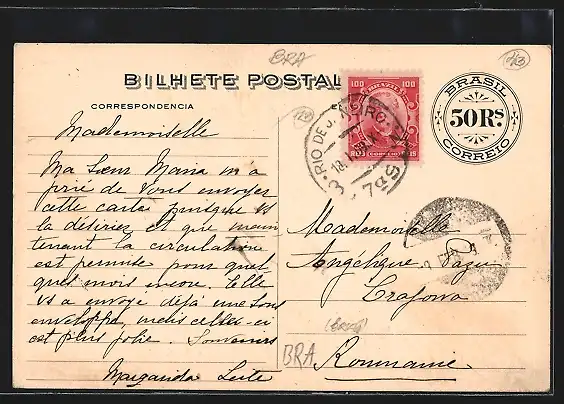 BRA
BILHETE POSTAL
CORRESPONDENCIA
100 BRAZIL 100
RIO DE JANEIRO
BRASIL
50 RS
CORREIO
Mademoiselle
Ma Soeur Maria m'a
prié de Vous envoyer
cette carte puisque Vs
la désiriez et que main
tenant la circulation
est permise pour quel
ques mois encore. Elle
Vs a envoyé déjà une sous
enveloppe, mais celle-ci
est plus jolie. Souvenirs
Margarida Leite
Mademoiselle
Angélique
Craiova
BRA
Roumanie